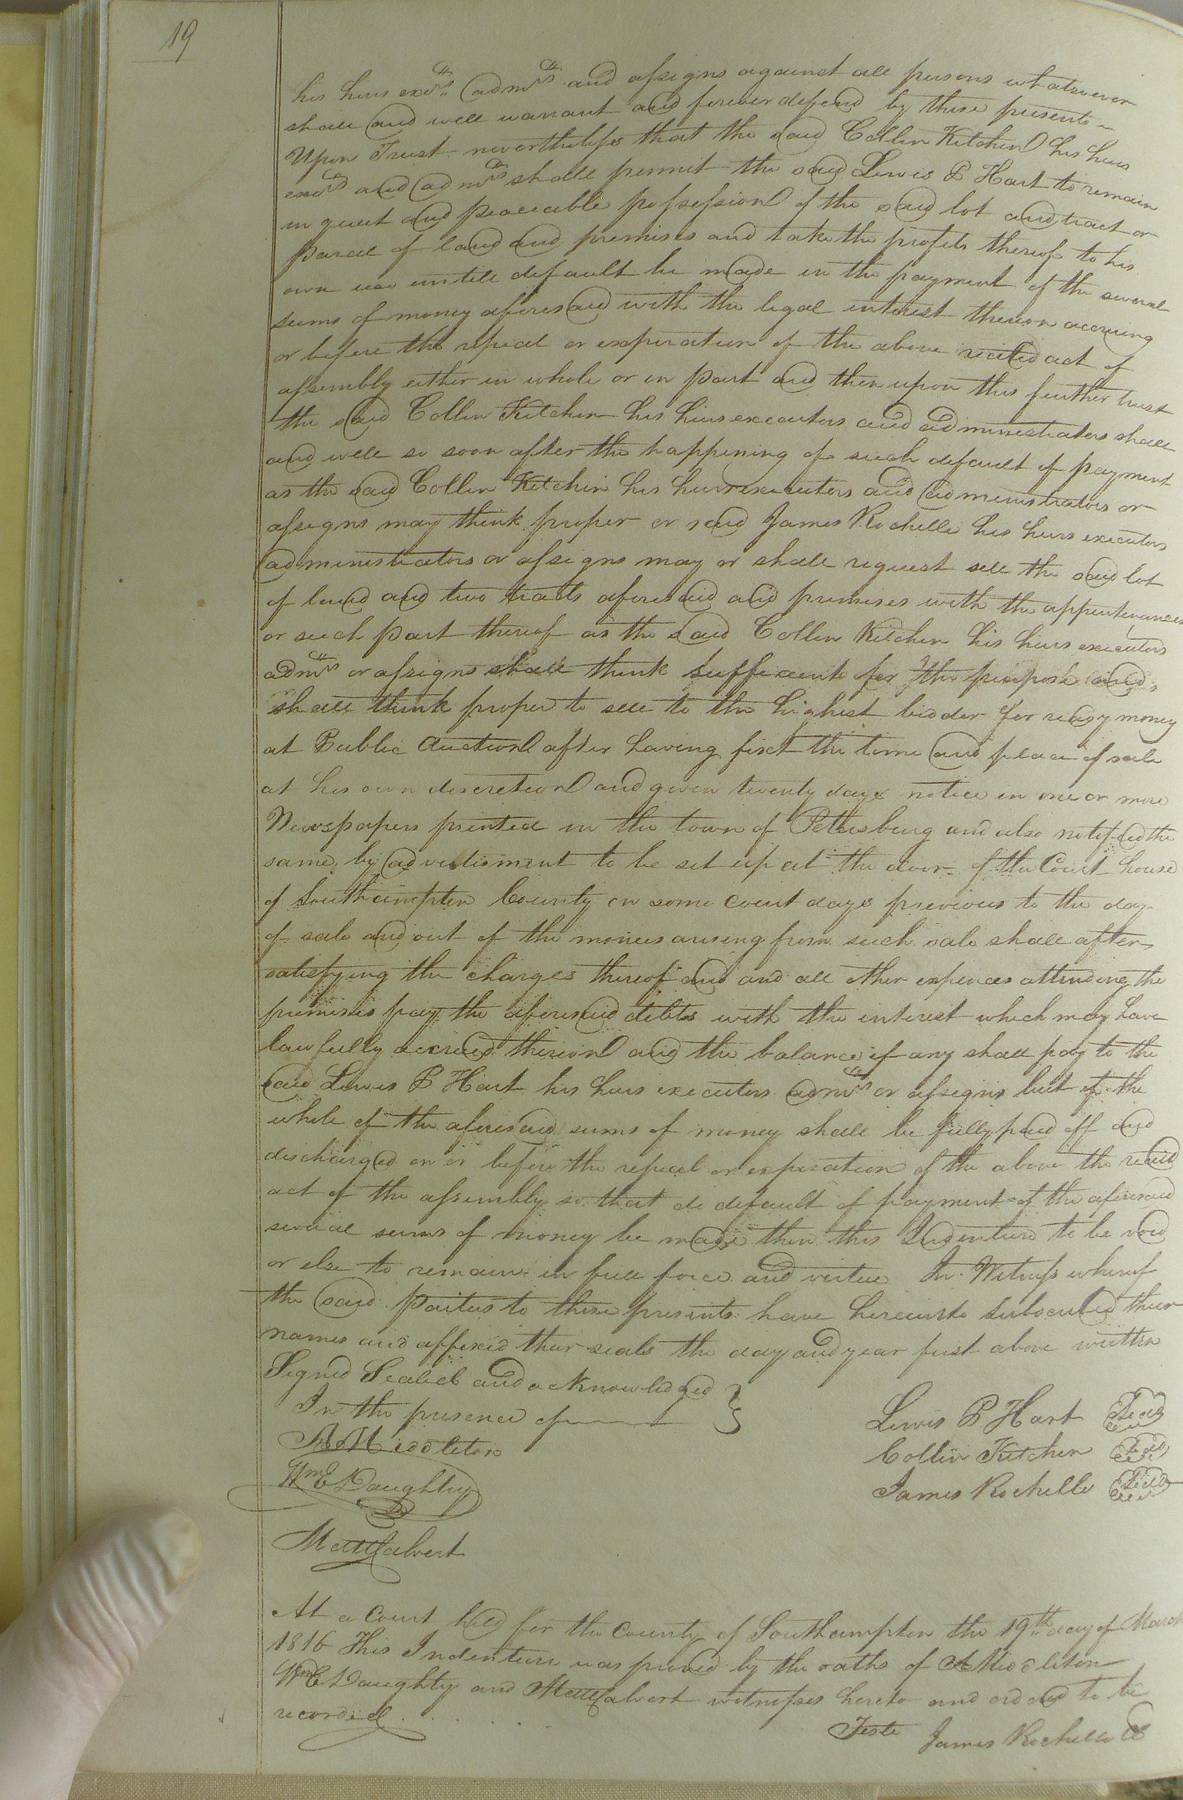 19
his heirs exors admrs and assigns against all persons whatsoever
shall and will warrant and forever defend by these presents
Upon Trust nevertheless that the said Collin Kitchen his heirs
exors and admrs shall permit the said Lewis B Hart to remain
in quiet and peaceable possession of the said lot and tract or
parcel of land and premises and take the profits thereof to his
own use untill default be made in the payment of the several
sums of money aforesaid with the legal interest thereon accruing
or before the repeal or expiration of the above recited act of
assembly either in whole or in part and then upon this further trust
the said Collin Kitchen his heirs executors and administrators shall
and will so soon after the happening of such default of payment
as the said Collin Kitchin his heirs executors and administrators or
assigns may think proper or said James Rochelle his heirs executors
administrators or assigns may or shall request sell the said lot
of land and two tracts aforesaid and premises with the appurtenances
or such part thereof as the said Collin Kitchen his heirs executors
admrs or assigns shall think sufficient for the purpose and
shall think proper to sell to the highest bidder for ready money
at Public Auction after having fixt the time and place of sale
at his own discretion and given twenty days notice in one or more
Newspapers printed in the town of Petersburg and also notifyed the
same by advertisment to be set up at the door of the Court house
of Southampton County on some court days previous to the day
of sale and out of the monies arising from such sale shall after
satisfying the charges thereof and and all other expences attending the
premises pay the aforesaid debts with the interest which may have
lawfully accrued thereon and the balance if any shall pay to the
said Lewis B Hart his heirs executors admrs or assigns but if the
whole of the aforesaid sums of money shall be fully paid off and
discharged on or before the repeal or expiration of the above the recited
act of the assembly so that do default of payment of the aforesaid
several sums of money be made then this Indenture to be void
or else to remain in full force and virtue In Witness whereof
the said Parties to these presents have hereunto subscribed their
names and affixed their seals the day and year first above written
Signed Sealed and acknowledged }
In the presence of
A Middleton
Wm E Daughtry
Mattw Calvert
Lewis B Hart Seal
Collin Kitchen Seal
James Rochelle Seal
At a Court held for the County of Southampton the 19th day of March
1816 This Indenture was proved by the oaths of A Middleton
Wm E Daughtry and Mattw Calvert witnesses hereto and ordered to be
recorded
Teste James Rochelle Cl